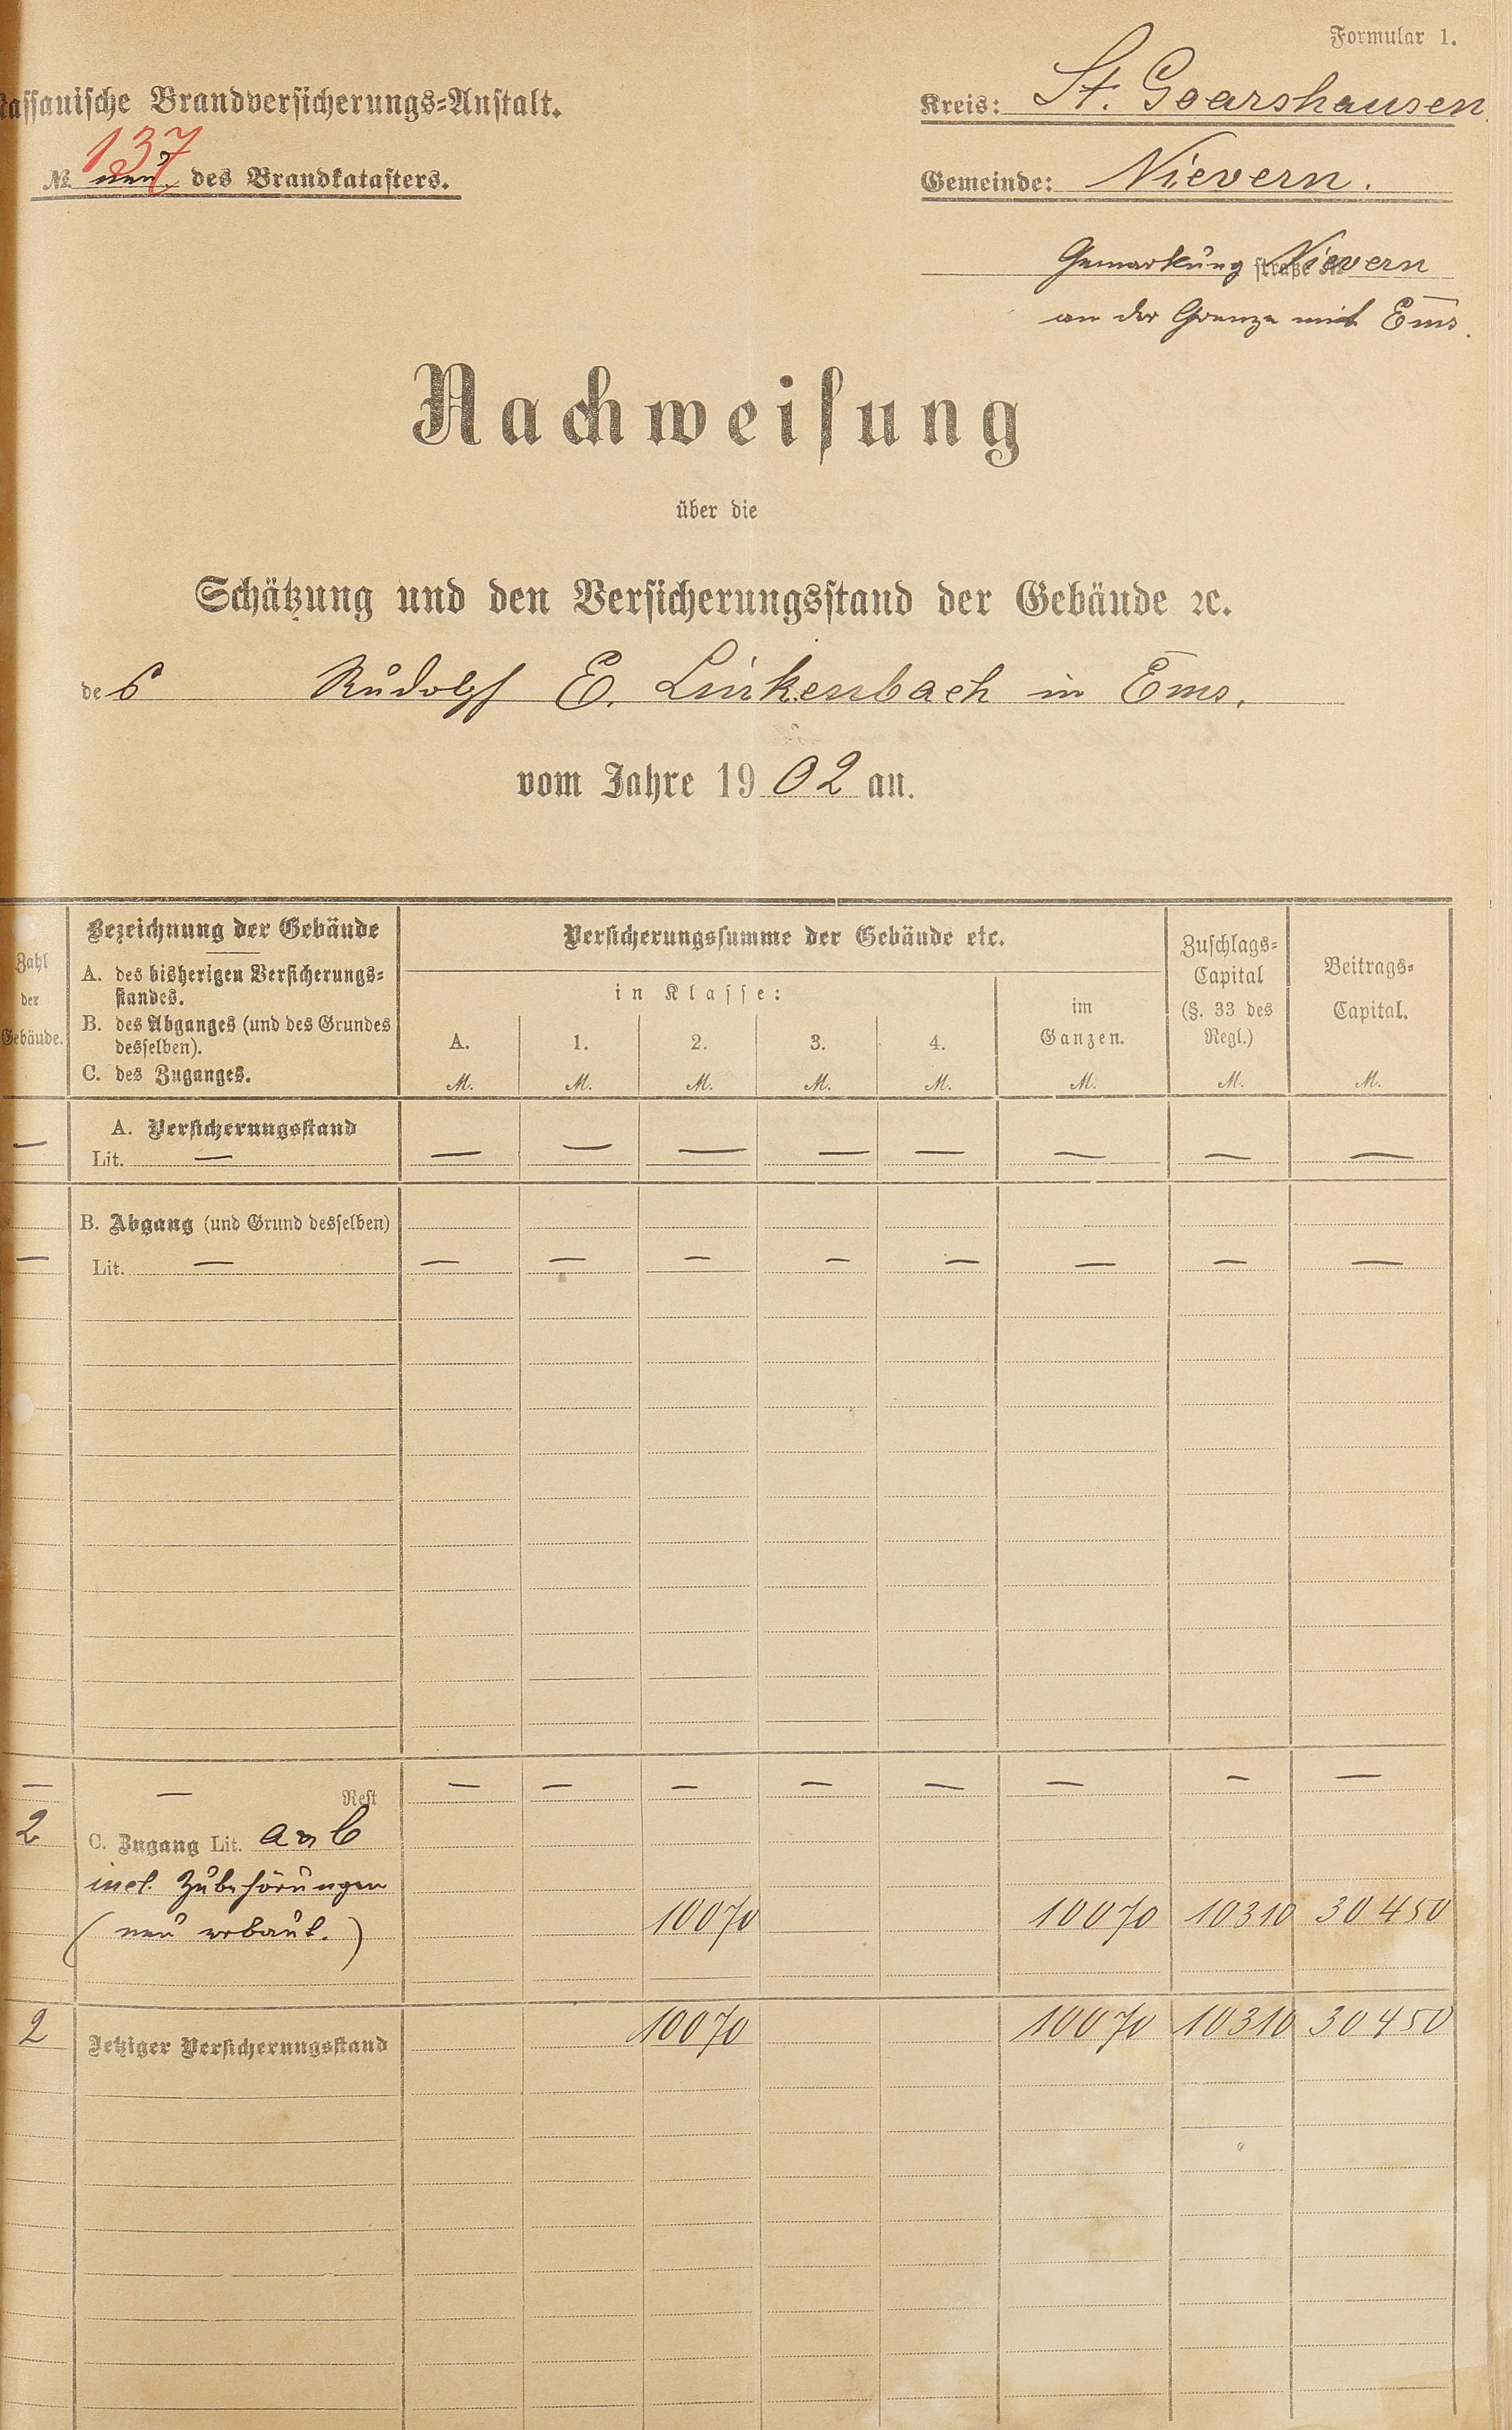 Formular 1.
Nassauische Brandversicherungs-Anstalt.
Kreis: St. Goarshausen.
137
№ neu. des Brandkatasters.
Gemeinde: Nievern.
Gemarkung straße № Nievern
an der Grenze mit Ems.
Nachweisung
über die
Schätzung und den Versicherungsstand der Gebäude ꝛc.
des Rudolf E. Linkenbach in Ems.
vom Jahre 1902 an.
Zahl der Gebäude.
Bezeichnung der Gebäude
A. des bisherigen Versicherungs-
standes.
B. des Abganges (und des Grundes
desselben).
C. des Zuganges.
Versicherungssumme der Gebäude etc.
in Klasse:
A. 1. 2. 3. 4.
M. M. M. M. M.
im
Ganzen.
M.
Zuschlags-
Capital
(§. 33 des
Regl.)
M.
Beitrags-
Capital.
M.
A. Versicherungsstand
— Lit. — — — — — — — — —
B. Abgang (und Grund desselben)
— Lit. — — — — — — — — —
— — Rest — — — — — — — —
2 C. Zugang Lit. a & b
incl. Zubehörungen
(neu erbaut.) 10070 10070 10310 30450
2 Jetziger Versicherungsstand 10070 10070 10310 30450